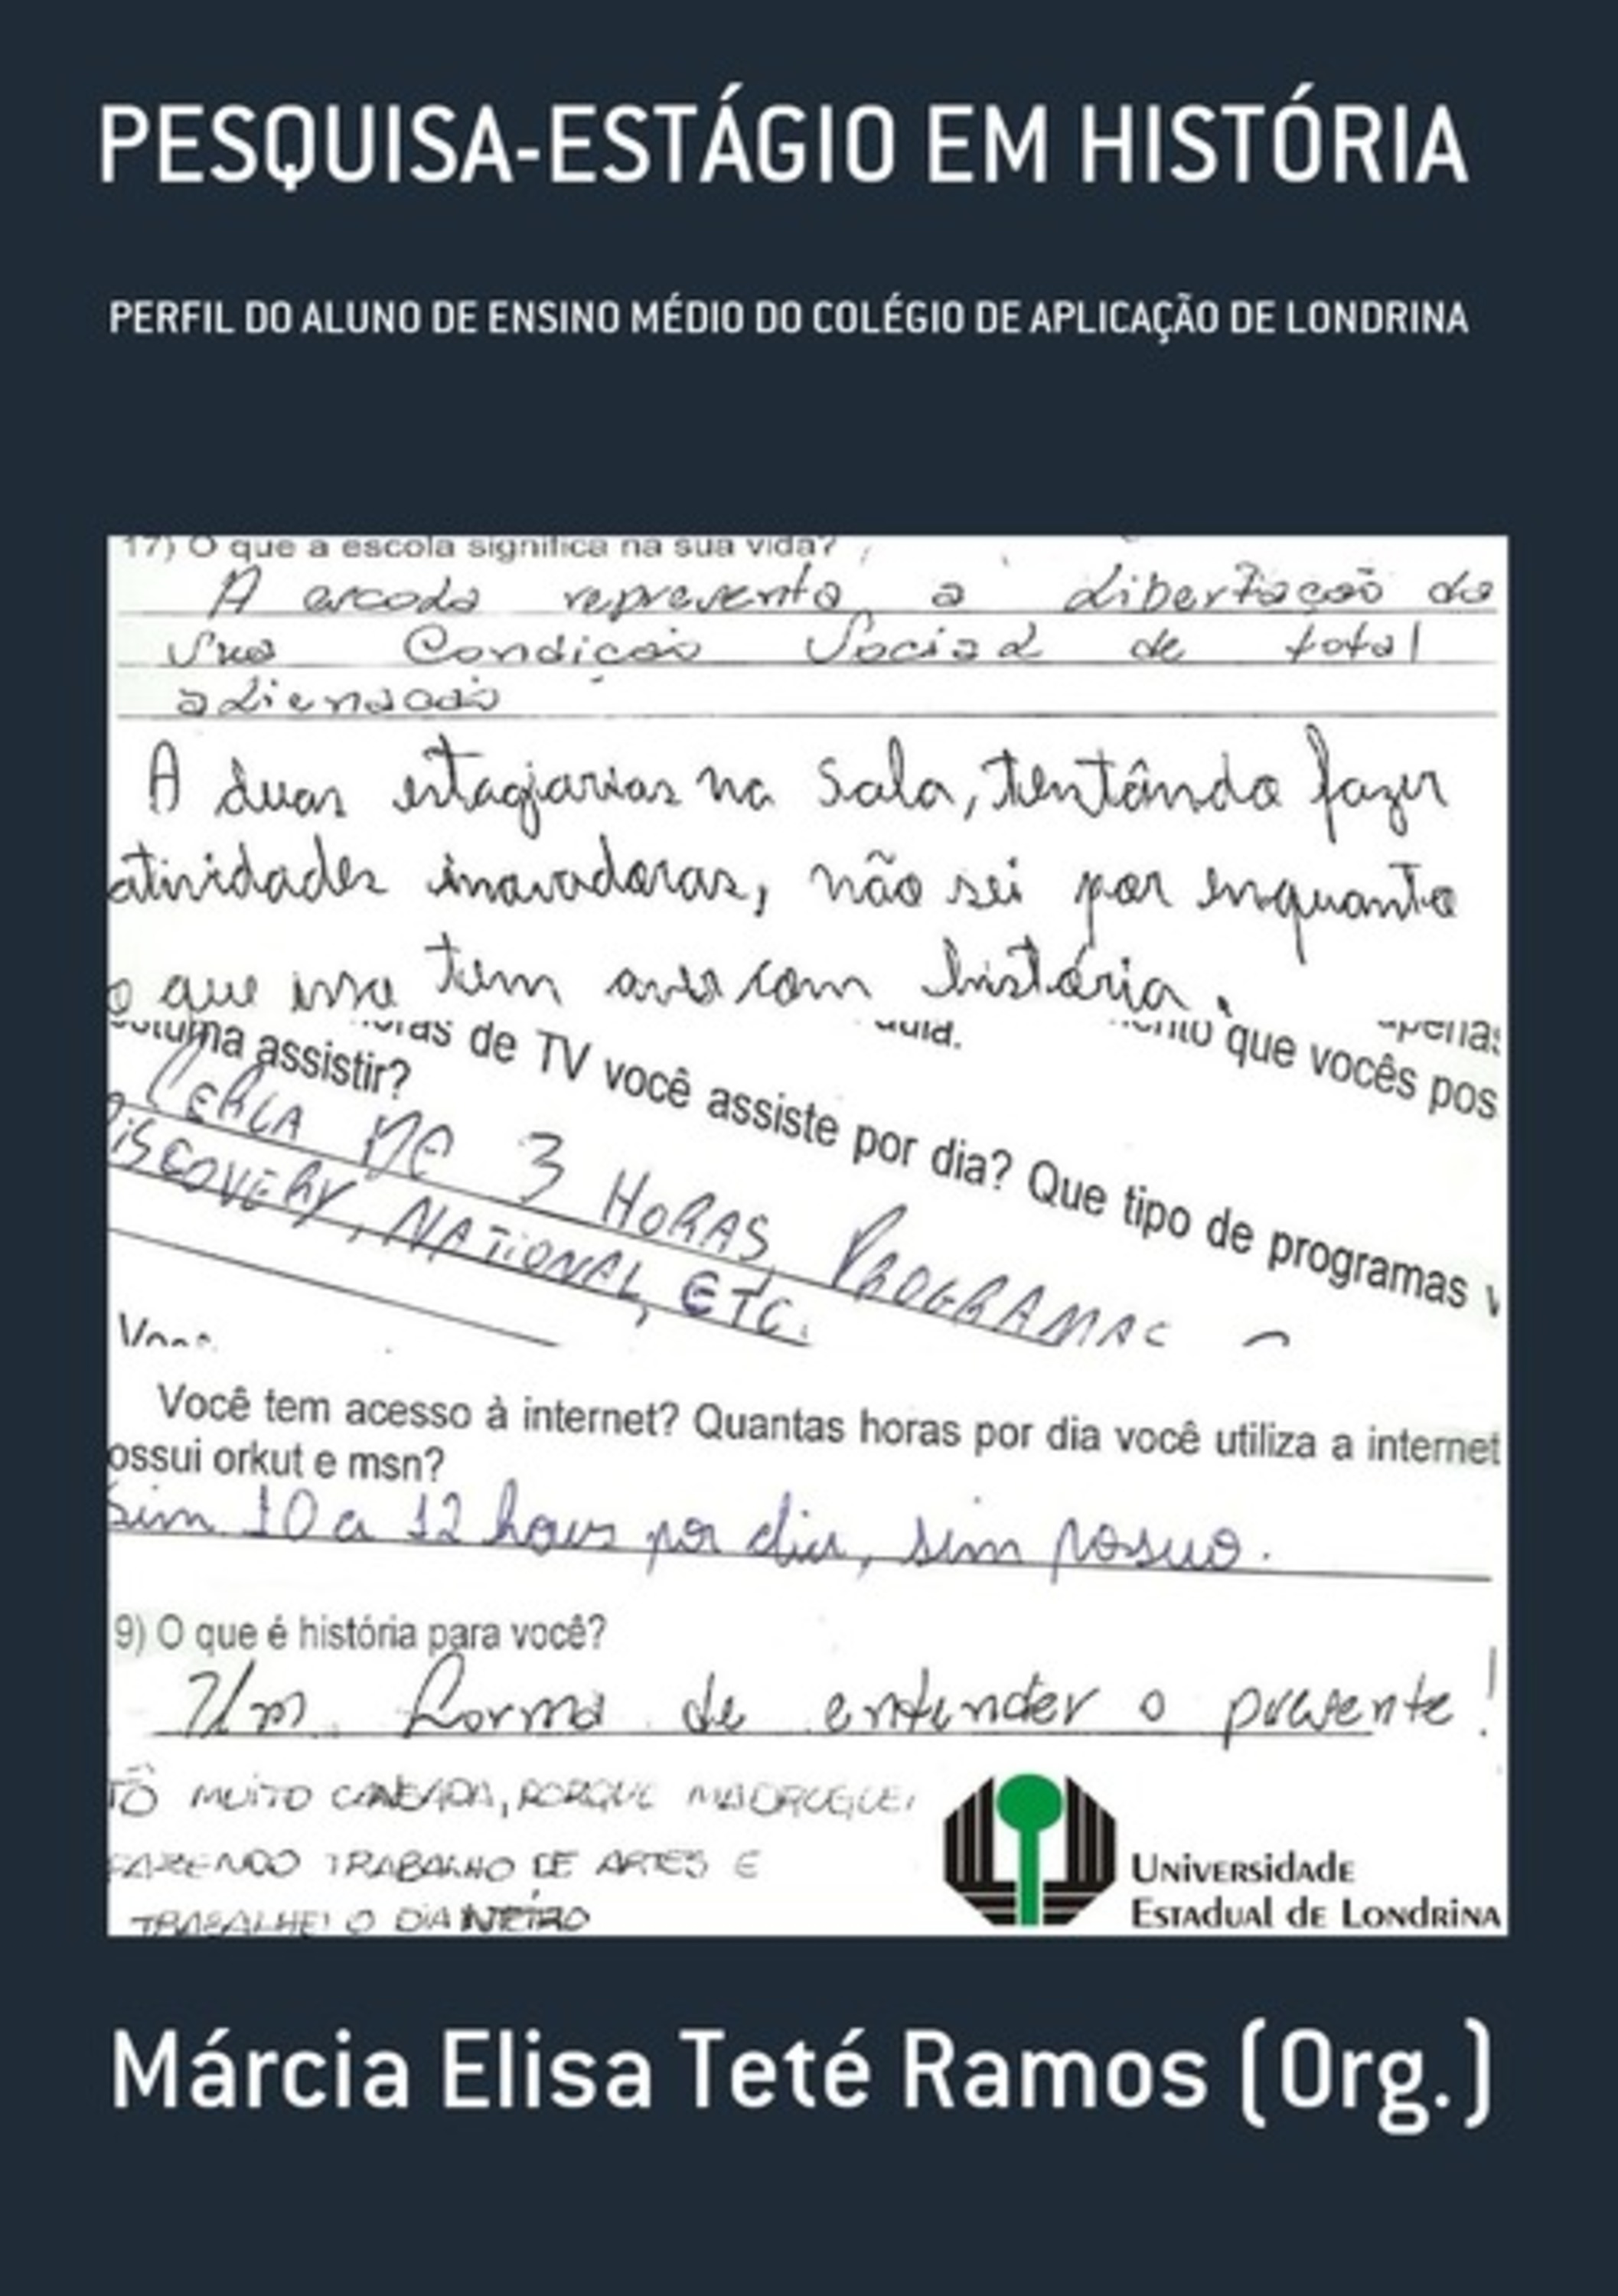 PESQUISA-ESTÁGIO EM HISTÓRIA
PERFIL DO ALUNO DE ENSINO MÉDIO DO COLÉGIO DE APLICAÇÃO DE LONDRINA
17) O que a escola significa na sua vida?
A escola representa a libertação da
sua Condição Social de total
alienação
A duas estagiarias na sala, tentândo fazer
atividades inovadoras, não sei por enquanto
o que isso tem aver com história.
aula. que vocês pos
assistir? de TV você assiste por dia? Que tipo de programas v
CERCA DE 3 HORAS, PROGRAMAS
DISCOVERY, NATIONAL, ETC.
Você tem acesso à internet? Quantas horas por dia você utiliza a internet
ossui orkut e msn?
Sim 10 a 12 horas por dia, sim possuo.
9) O que é história para você?
Um forma de entender o presente!
TÔ MUITO CANSADA, PORQUE MADRUGUEI
FAZENDO TRABALHO DE ARTES E
TRABALHEI O DIA INTEIRO
Universidade
Estadual de Londrina
Márcia Elisa Teté Ramos (Org.)